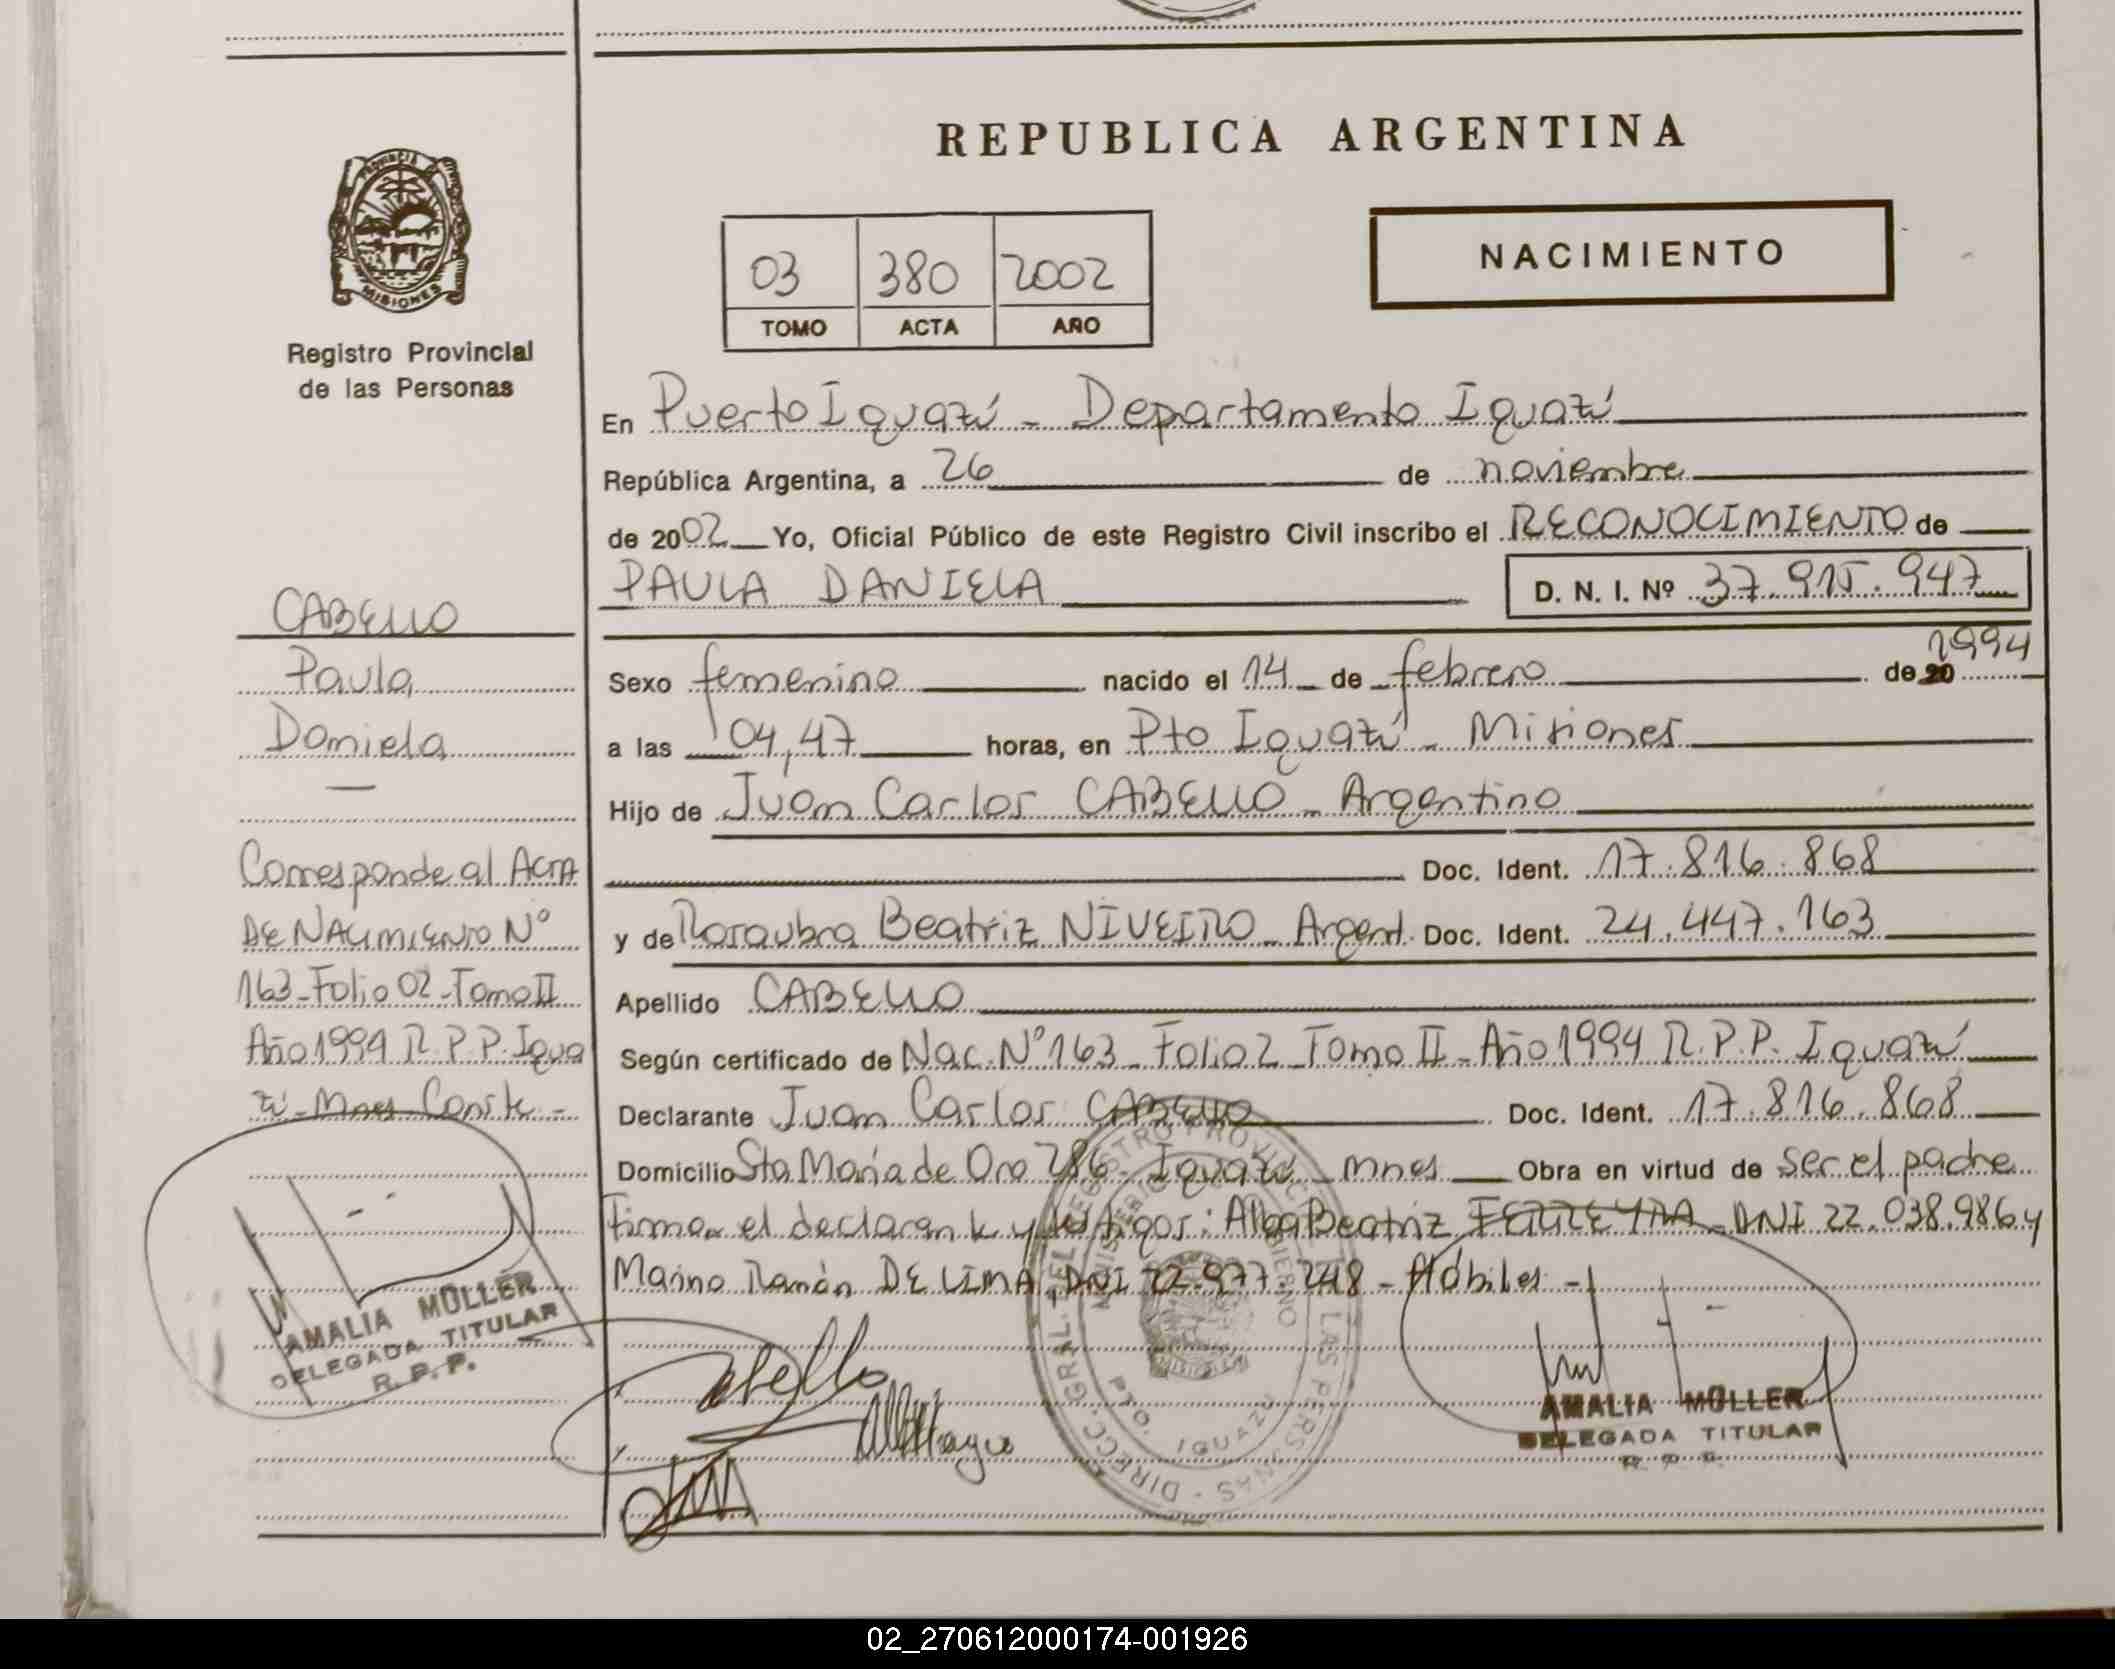 REPUBLICA ARGENTINA
PROVINCIA
MISIONES
Registro Provincial
de las Personas
03 380 2002
TOMO ACTA AÑO
NACIMIENTO
En Puerto Iguazú - Departamento Iguazú
República Argentina, a 26 de noviembre
de 2002 Yo, Oficial Público de este Registro Civil inscribo el RECONOCIMIENTO de
PAULA DANIELA D. N. I. Nº 37.915.947
Sexo femenino nacido el 14 de febrero de 20 1994
a las 04,47 horas, en Pto Iguazú - Misiones
Hijo de Juan Carlos CABELLO - Argentino
Doc. Ident. 17.816.868
y de Beatriz NIVEIRO - Argent. Doc. Ident. 24.447.163
Apellido CABELLO
Según certificado de Nac. Nº 163 - Folio 2 - Tomo II - Año 1994 R.P.P. Iguazú
Declarante Juan Carlos CABELLO Doc. Ident. 17.816.868
Domicilio Sta María de Oro 286 - Iguazú - Mnes Obra en virtud de ser el padre
Firman el declarante y testigos: Alba Beatriz FERREYRA - DNI 22.038.986 y
Marino Ramón DE LIMA, DNI 22.977.248 - Hábiles -
CABELLO
Paula
Daniela
Corresponde al ACTA
DE NACIMIENTO Nº
163 - Folio 02 - Tomo II
Año 1994 R.P.P. Igua
zú - Mnes - Conste -
AMALIA MÜLLER
DELEGADA TITULAR
R. P. P.
DIREC. GRAL. DEL REGISTRO PROVINCIAL DE LAS PERSONAS
MINISTERIO DE GOBIERNO
PTO. IGUAZU
AMALIA MÜLLER
DELEGADA TITULAR
R. P. P.
02_270612000174-001926